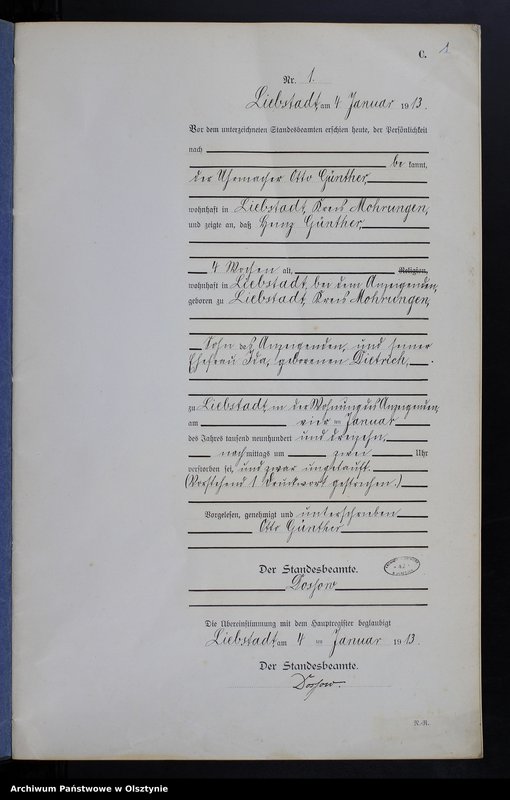 C. 1
Nr. 1.
Liebstadt, am 4 Januar 1913.
Vor dem unterzeichneten Standesbeamten erschien heute, der Persönlichkeit
nach
bekannt,
der Uhrmacher Otto Günther,
wohnhaft in Liebstadt, Kreis Mohrungen,
und zeigte an, daß Heinz Günther,
4 Wochen alt, Religion,
wohnhaft in Liebstadt, bei dem Anzeigenden,
geboren zu Liebstadt, Kreis Mohrungen,
Sohn des Anzeigenden, und seiner
Ehefrau Ida, geborenen Dietrich,
zu Liebstadt, in der Wohnung des Anzeigenden,
am vier ten Januar
des Jahres tausend neunhundert und dreizehn,
nachmittags um zwei Uhr
verstorben sei, und zwar ungetauft.
(Vorstehend 1 Druckwort gestrichen.)
Vorgelesen, genehmigt und unterschrieben
Otto Günther
Der Standesbeamte.
Dossow
Die Übereinstimmung mit dem Hauptregister beglaubigt
Liebstadt, am 4 ten Januar 1913.
Der Standesbeamte.
Dossow.
Archiwum Państwowe w Olsztynie